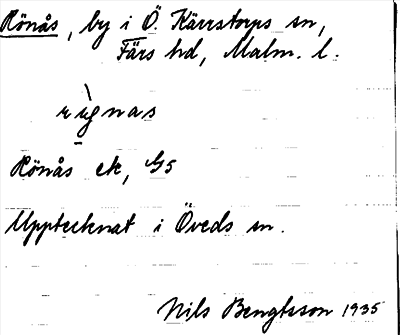 Rönås, by i Ö. Kärrstorps sn,
Färs hd, Malm. l.
rỳgnas
Rönås ek, G5
Upptecknat i Öveds sn.
Nils Bengtsson 1935